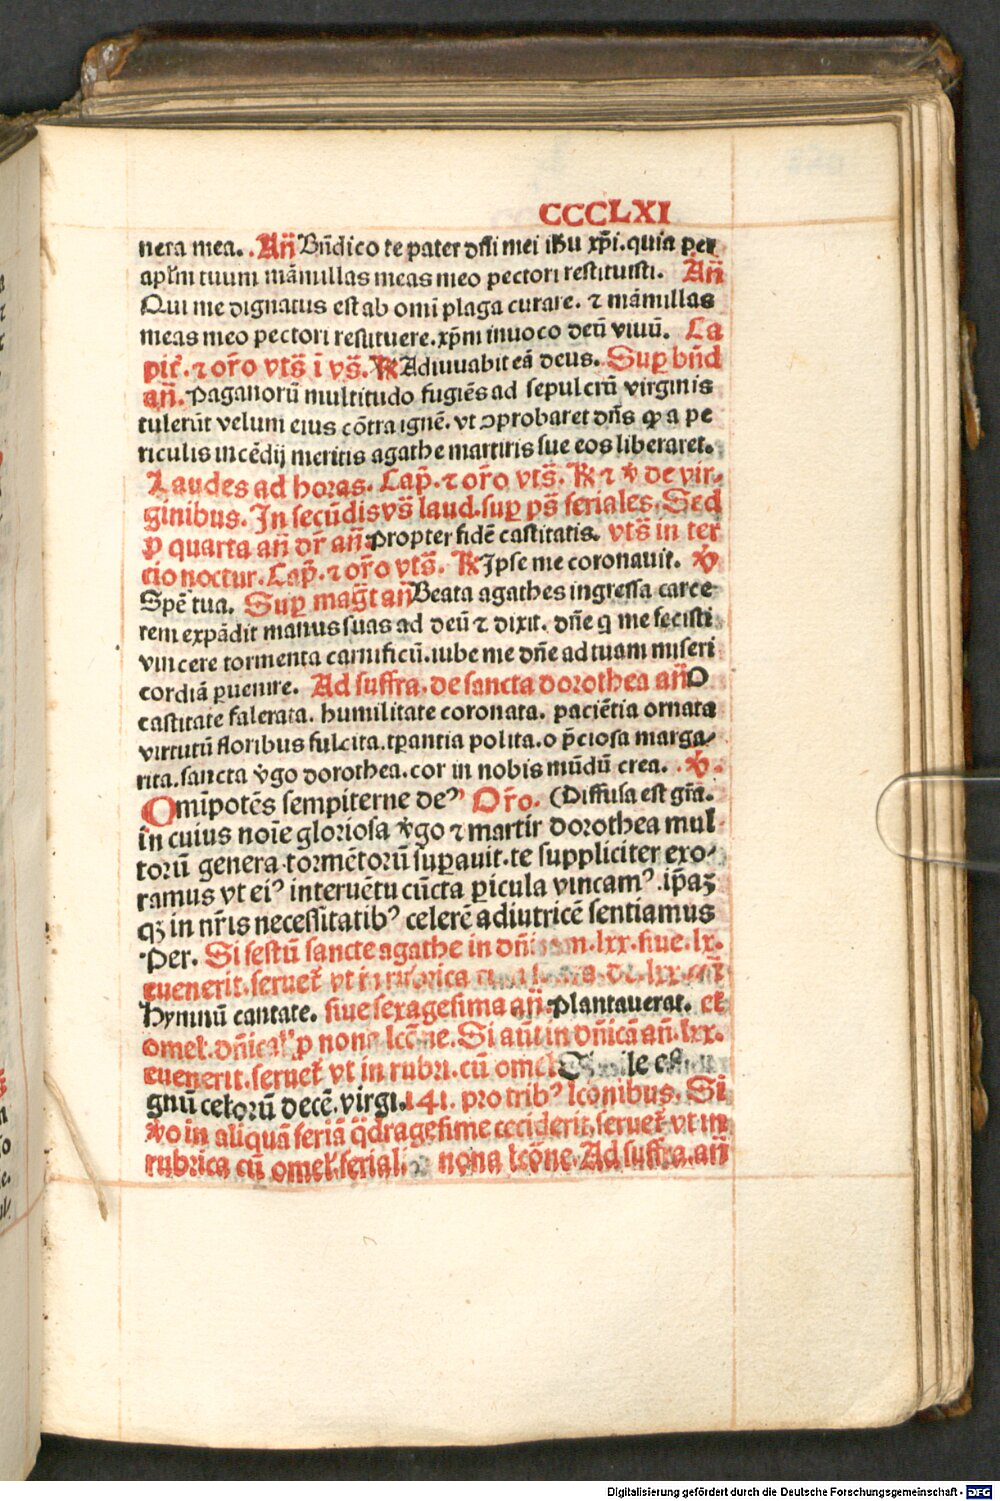 CCCLXI
nera mea. An̄ Bn̄dico te pater dn̄i mei ihu xp̄i. quia per
apl̄m tuum mām̄illas meas meo pectori restituisti. An̄
Qui me dignatus est ab omī plaga curare. ⁊ mām̄illas
meas meo pectori restituere. xp̄m inuoco deū viuū. Ca
pit̄. ⁊ or̄o vts̄ ī vs̄. ℟ Adiuuabit eā deus. Sup̄ bn̄d
an̄. Paganorū multitudo fugiēs ad sepulcrū virginis
tulerūt velum eius cōtra ignē. vt ꝯprobaret dn̄s ꝙ a pe
riculis incēdij meritis agathe martiris sue eos liberaret.
Laudes ad horas. Cap̄. ⁊ or̄o vts̄. ℟ ⁊ ℣ de vir-
ginibus. In secūdis vs̄ laud. sup̄ ps̄ feriales. Sed
ꝑ quarta an̄ dr̄ an̄ Propter fidē castitatis. vts̄ in ter
cio noctur. Cap̄. ⁊ or̄o vts̄. ℟ Ipse me coronauit. ℣
Spē tua. Sup̄ maḡt an̄ Beata agathes ingressa carce
rem expādit manus suas ad deū ⁊ dixit. dn̄e q me fecisti
vincere tormenta carnificū. iube me dn̄e ad tuam miseri
cordiā ꝑuenire. Ad suffra. de sancta dorothea an̄ O
castitate falerata. humilitate coronata. paciētia ornata
virtutū floribus fulcita. tp̄antia polita. o p̄ciosa marga-
rita. sancta v̄go dorothea. cor in nobis mūdū crea. ℣.
Omīpotēs sempiterne deꝰ Or̄o. (Diffusa est grā.
in cuius noīe gloriosa v̄go ⁊ martir dorothea mul
torū genera tormētorū suꝑauit. te suppliciter exo-
ramus vt eiꝰ interuētu cūcta ꝑicula vincamꝰ. ip̄aꝫ
qꝫ in nr̄is necessitatibꝰ celerē adiutricē sentiamus
Per. Si festū sancte agathe in dn̄i lxx. siue. lx.
euenerit. seruet̄ vt in rubrica lxx.
Hymnū cantate. siue sexagesima an̄. Plantauerat. et
omel. dn̄ical' ꝑ nona Si aūt in dn̄icā an̄. lxx.
euenerit. seruet̄ vt in rubri. cū omel
gnū celorū decē. virgi. 141. pro tribꝰ lc̄onibus. Si
v̄o in aliquā feriā q̄dragesime ceciderit. seruet̄ vt in
rubrica cū omel. feriali nona lc̄one. Ad suffra. an̄
Digitalisierung gefördert durch die Deutsche Forschungsgemeinschaft - DFG